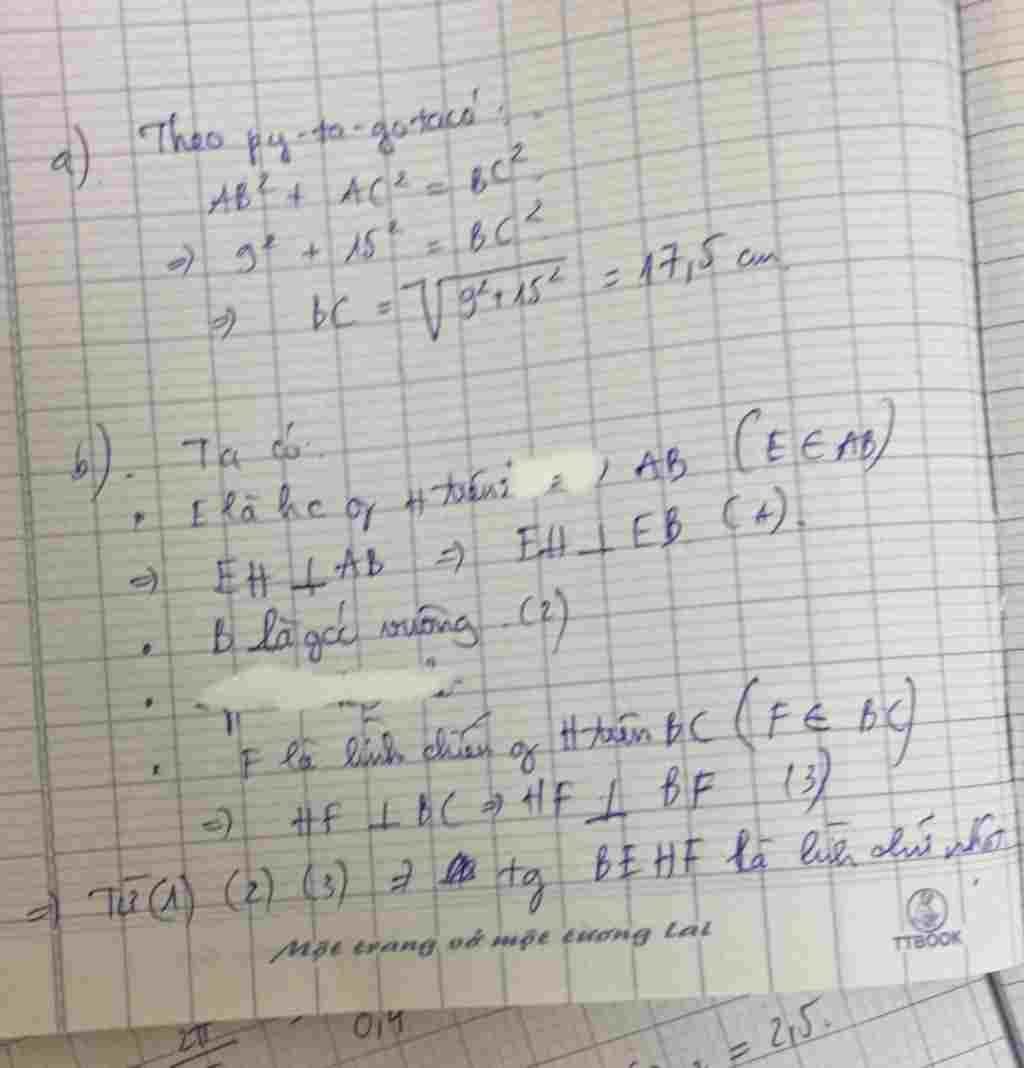 a) Theo py-ta-go ta có:
AB² + AC² = BC²
=> 9² + 15² = BC²
=> BC = √9²+15² = 17,5 cm
b). Ta có:
• E là hc of H trên AB (E ∈ AB)
=> EH ⊥ AB => EH ⊥ EB (1).
• B là góc vuông (2)
• F là hình chiếu of H trên BC (F ∈ BC)
=> HF ⊥ BC => HF ⊥ BF (3)
=> Từ (1) (2) (3) => tg BEHF là hình chữ nhật
Một trang vở một tương lai
TTBOOK
2π 0,4
= 2,5.